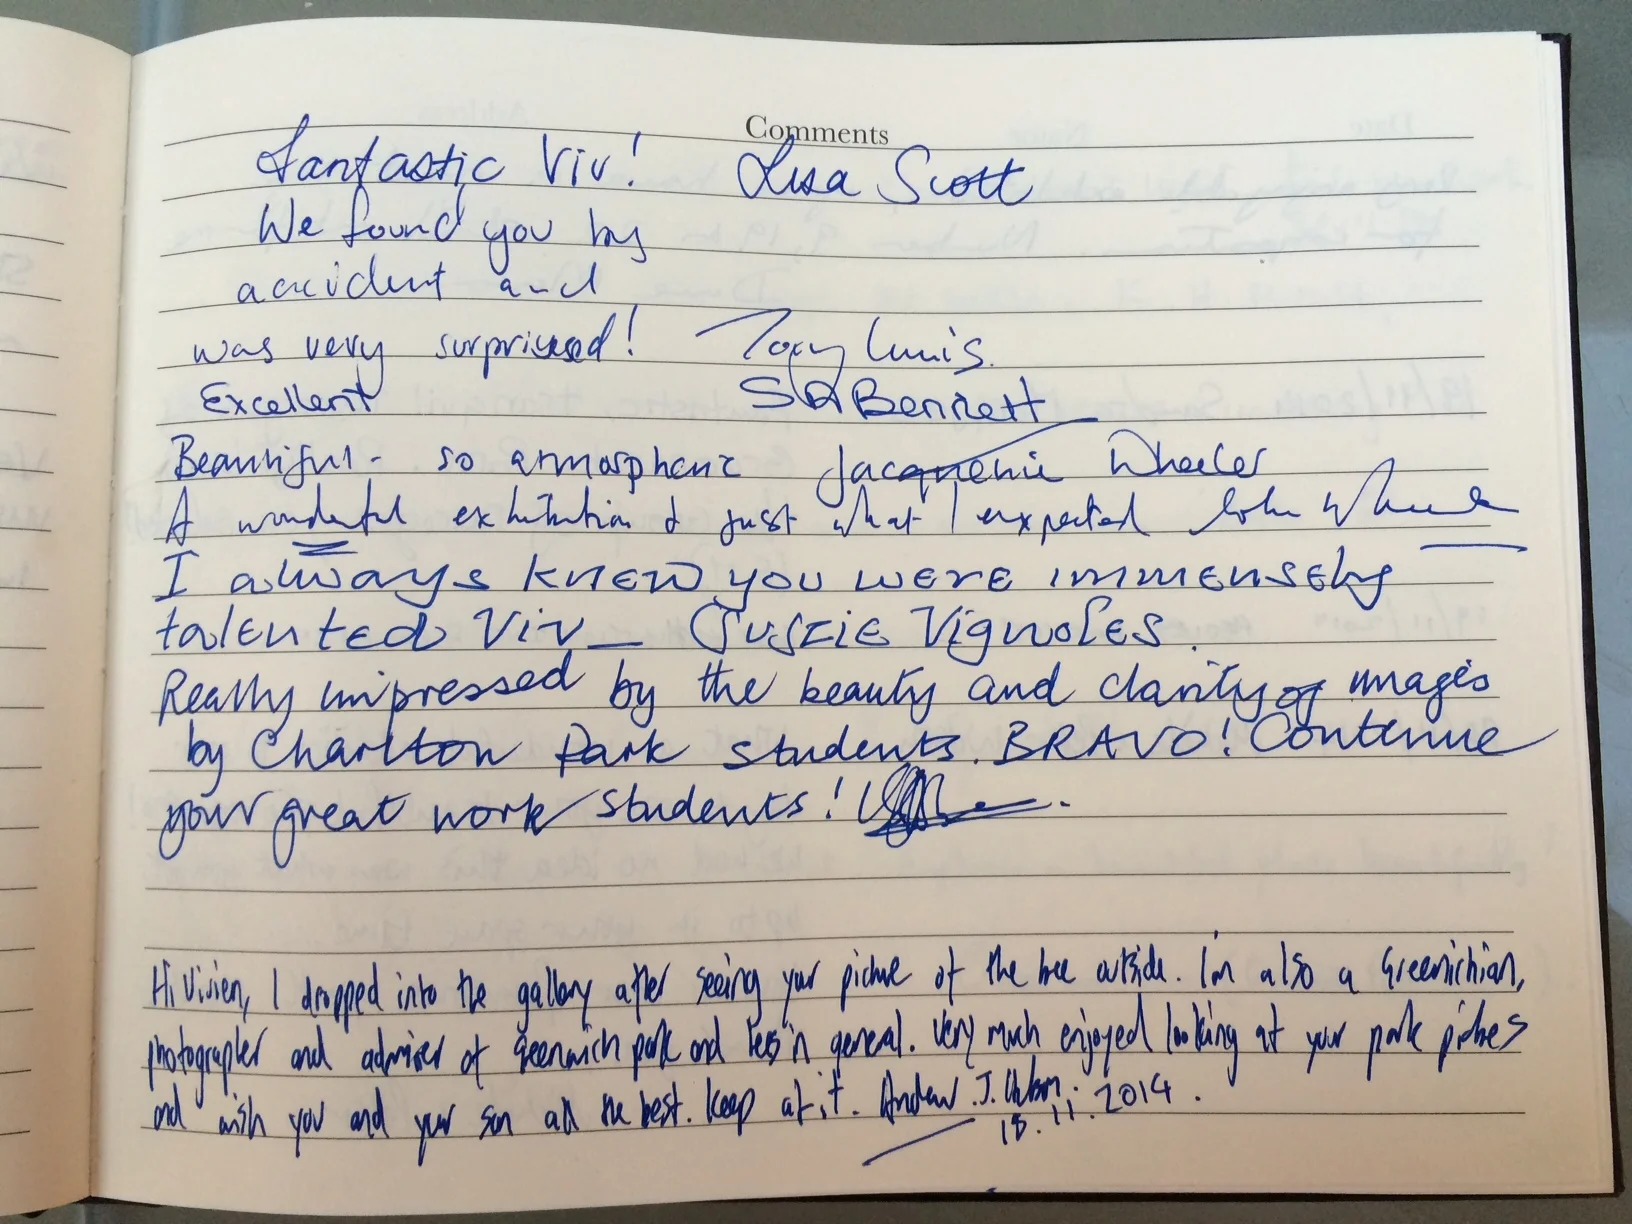 Comments
Fantastic Viv! Lisa Scott
We found you by
accident and
was very surprised! Tony
Excellent S A Bennett
Beautiful - so atmospheric Jacqueline Wheeler
A wonderful exhibition & just what I expected John
I always knew you were immensely
talented Viv - Suszie Vignoles.
Really impressed by the beauty and clarity of images
by Charlton Park students. BRAVO! Contenue
your great work students!
Hi Vivien, I dropped into the gallery after seeing your picture of the tree outside. I'm also a Greenwichian,
photographer and admirer of Greenwich park and trees in general. Very much enjoyed looking at your park pictures
and wish you and your son all the best. Keep at it. Andrew J.
18.11.2014.